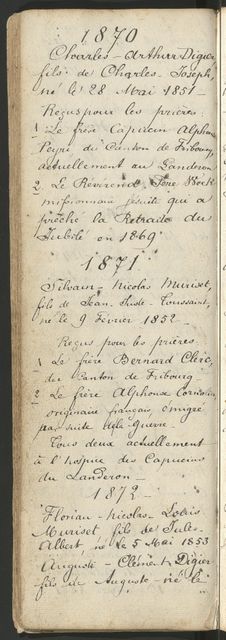 1870
Charles-Arthur Digier
fils de Charles-Joseph,
né le 28 Mai 1851-
Reçus pour les prières
1 Le frère Capucin Alphonse
du Canton de Fribourg,
actuellement au Landeron.
2. Le Révérend Père
missionnaire Jésuite qui a
prêché la Retraite du
Jubilé en 1869
1871
Silvain-Nicolas Muriset,
fils de Jean Juste-Toussaint,
né le 9 Février 1852-
Reçus pour les prières
1 Le frère Bernard
du Canton de Fribourg
2 Le frère Alphonse
originaire français émigré
par suite de la Guerre-
Tous deux actuellement
à l'hospice des Capucins
du Landeron-
1872-
Florian-Nicolas-Louis
Muriset fils de Jules-
Albert né le 5 Mai 1853
Auguste-Clément Digier
fils de Auguste-né le